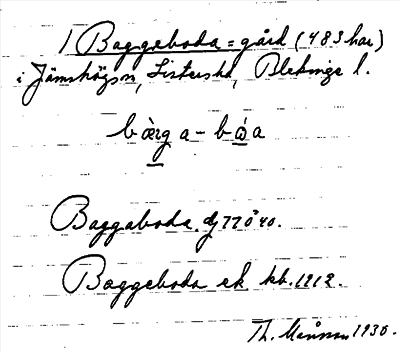 1 Baggeboda = gård (483 har)
i Jämshögs sn, Listers hd, Blekinge l.
bàrg a - bω̇ a
Baggaboda dj 77Ö40.
Baggeboda ek. kb. 1912.
Th. Månsson 1930.